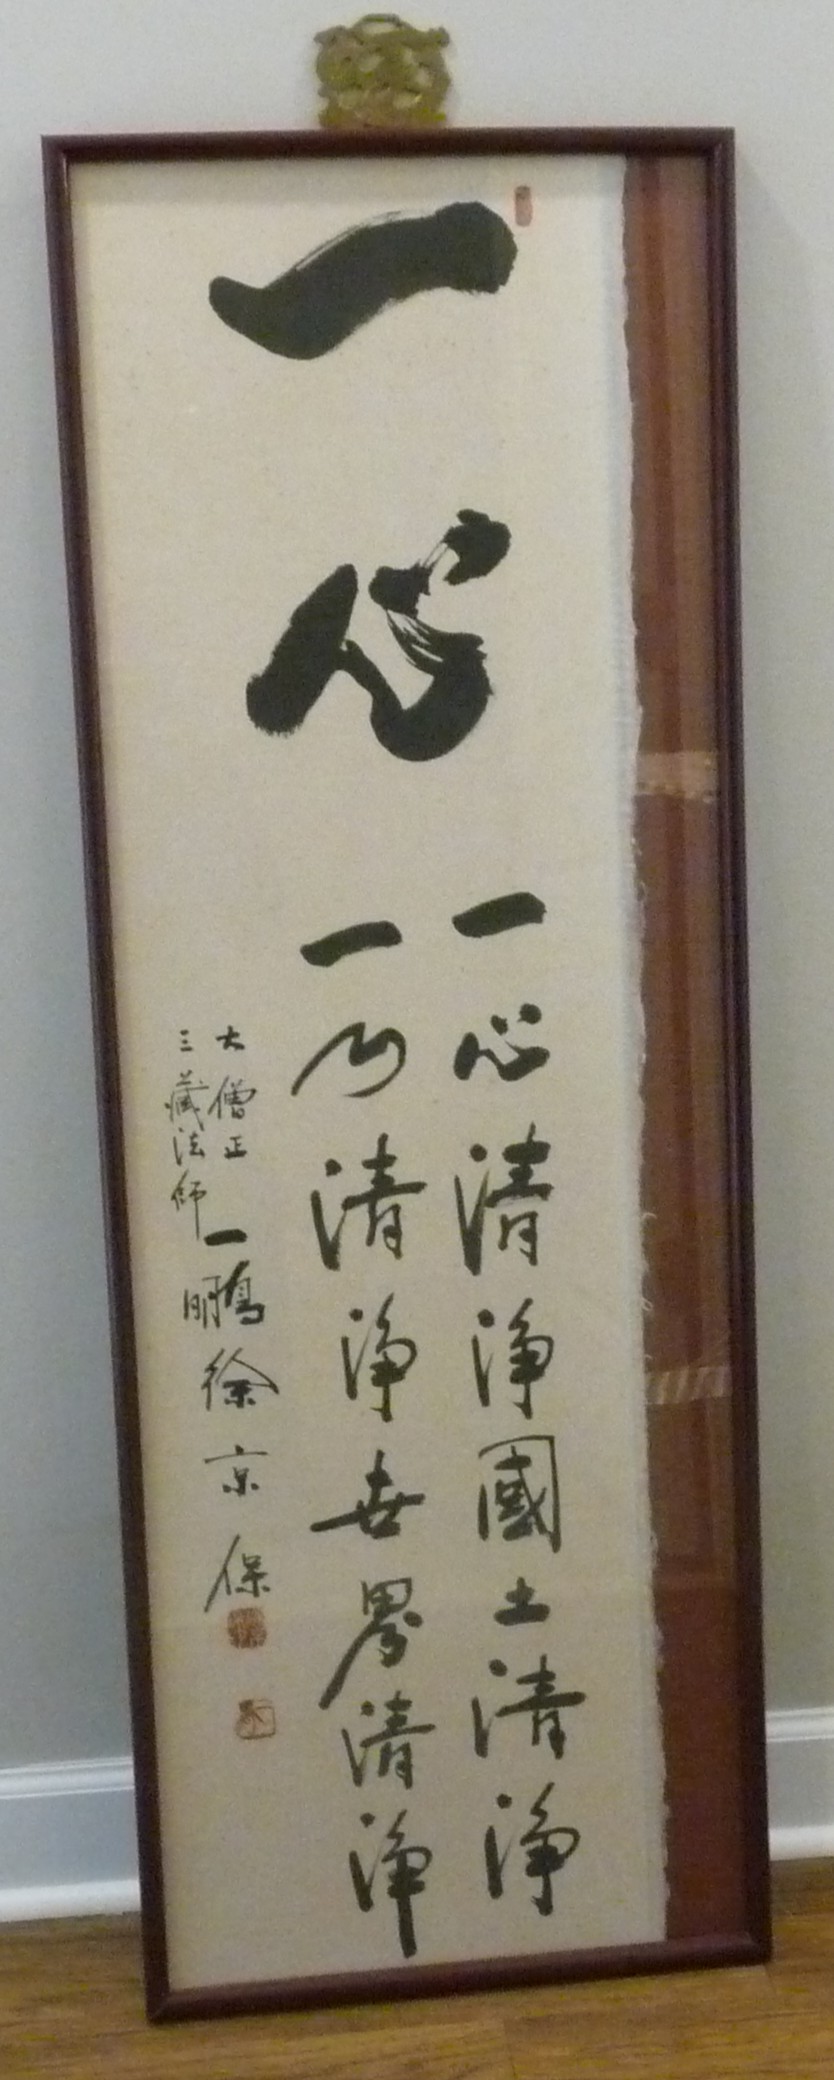 一心
一心清淨國土清淨
一心清淨世界清淨
大僧正
三藏法師
一鵬徐京保